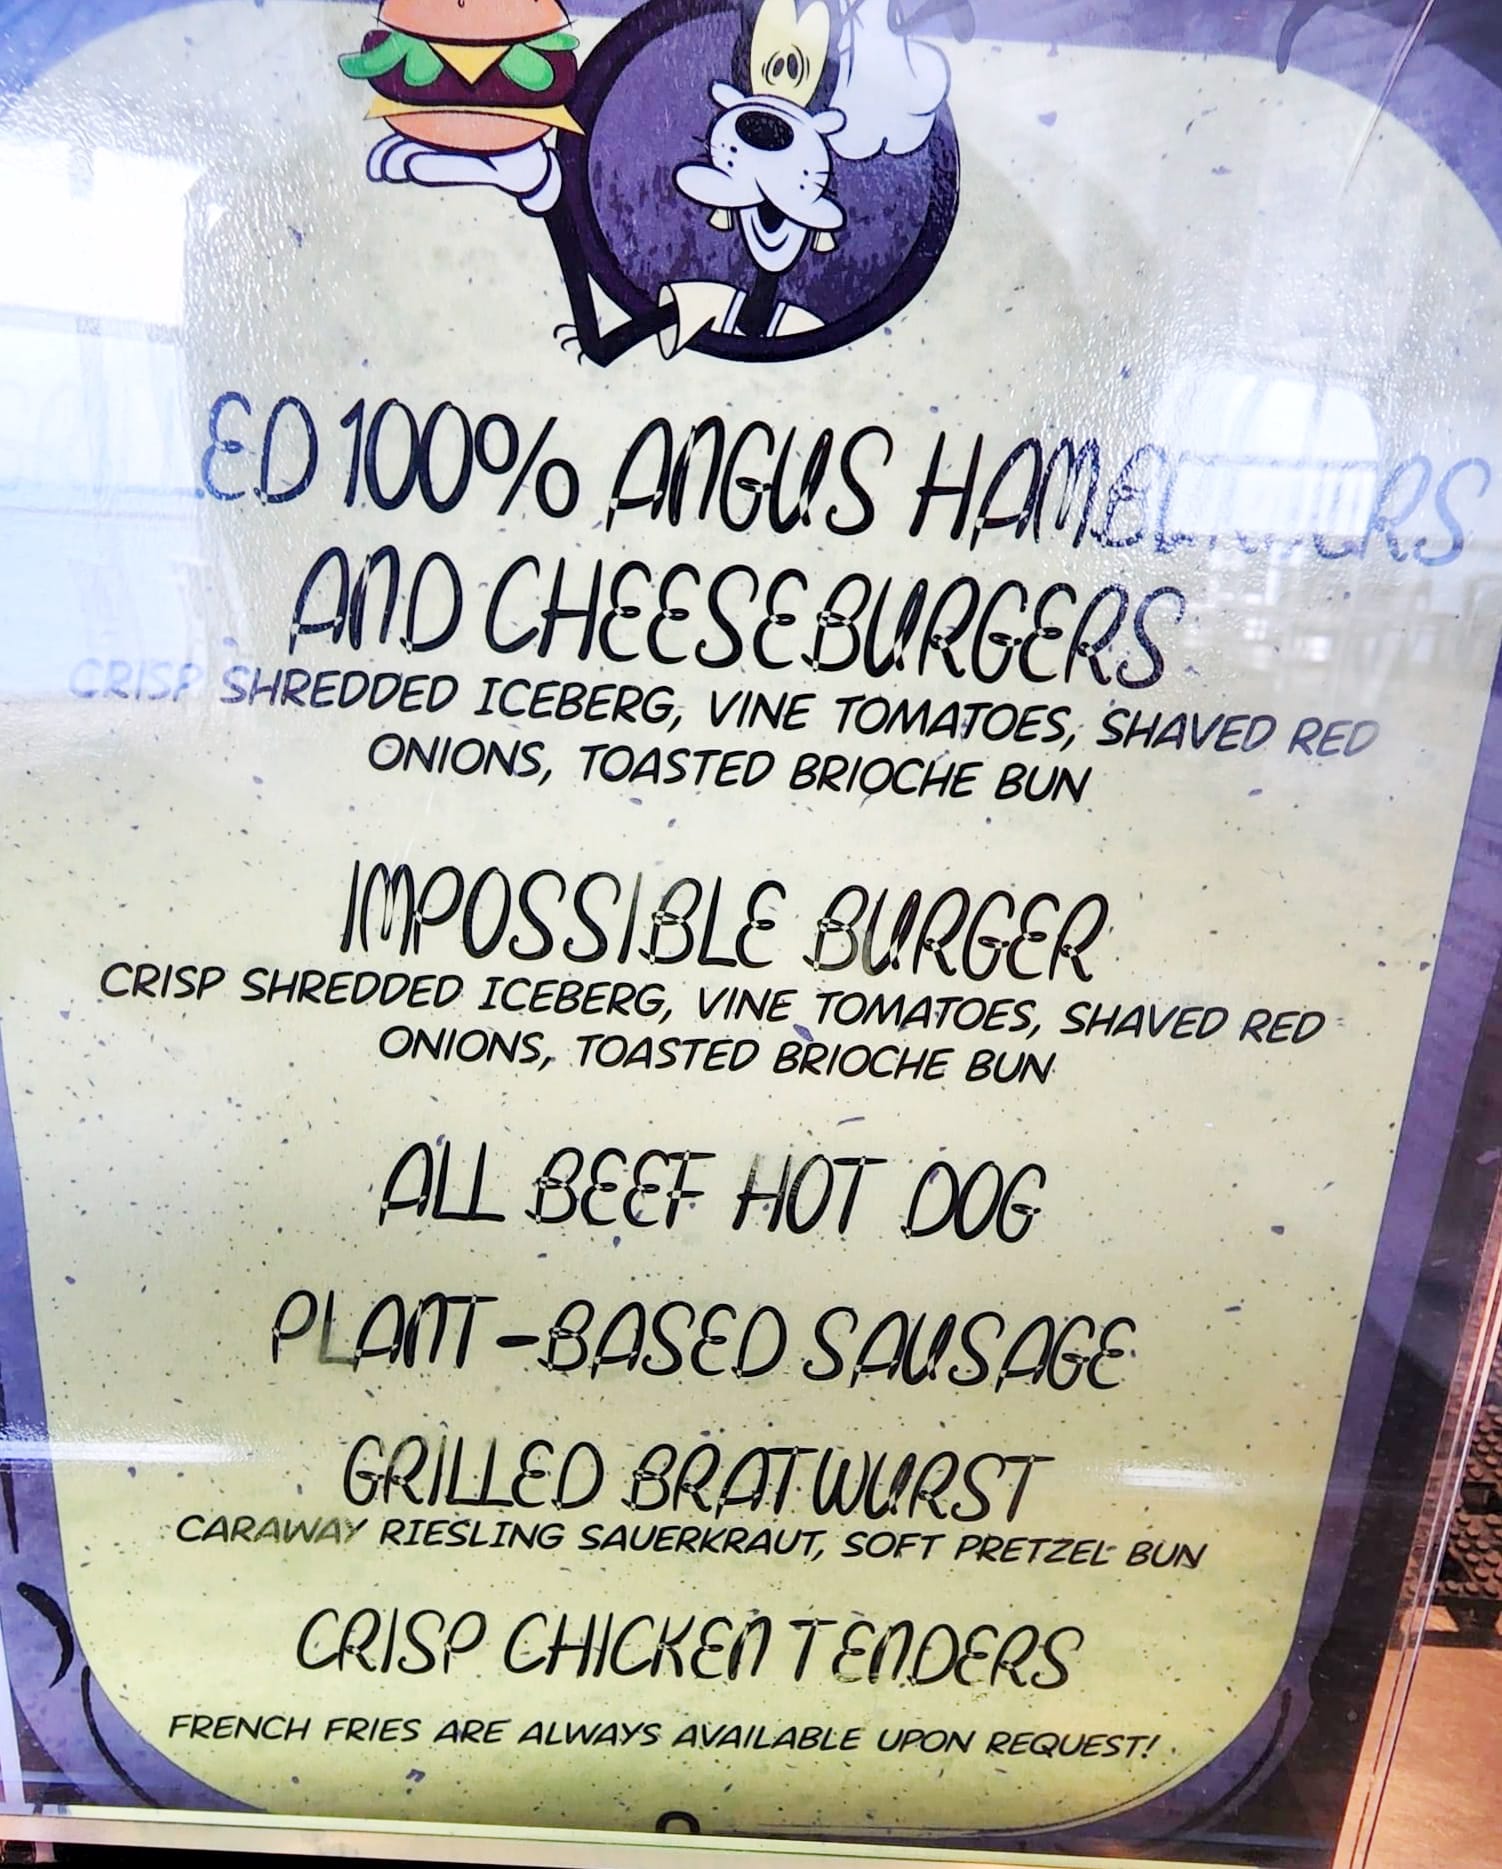 ED 100% ANGUS HAMBURGERS
AND CHEESEBURGERS
CRISP SHREDDED ICEBERG, VINE TOMATOES, SHAVED RED
ONIONS, TOASTED BRIOCHE BUN
IMPOSSIBLE BURGER
CRISP SHREDDED ICEBERG, VINE TOMATOES, SHAVED RED
ONIONS, TOASTED BRIOCHE BUN
ALL BEEF HOT DOG
PLANT-BASED SAUSAGE
GRILLED BRATWURST
CARAWAY RIESLING SAUERKRAUT, SOFT PRETZEL BUN
CRISP CHICKEN TENDERS
FRENCH FRIES ARE ALWAYS AVAILABLE UPON REQUEST!